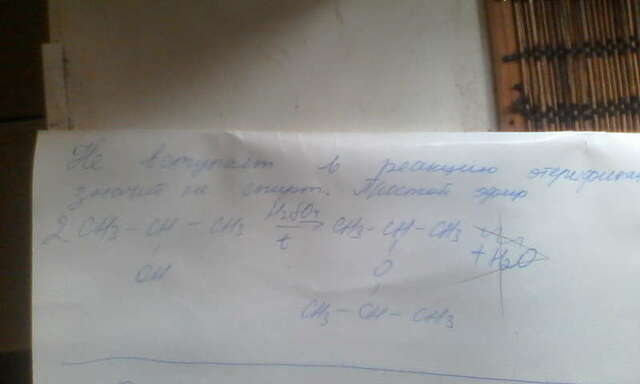 Не вступает в реакцию этерификац
значит не спирт. Простой эфир
2 CH3 – CH – CH3 H2SO4 t → CH3 – CH – CH3 + H2O
OH O
CH3 – CH – CH3